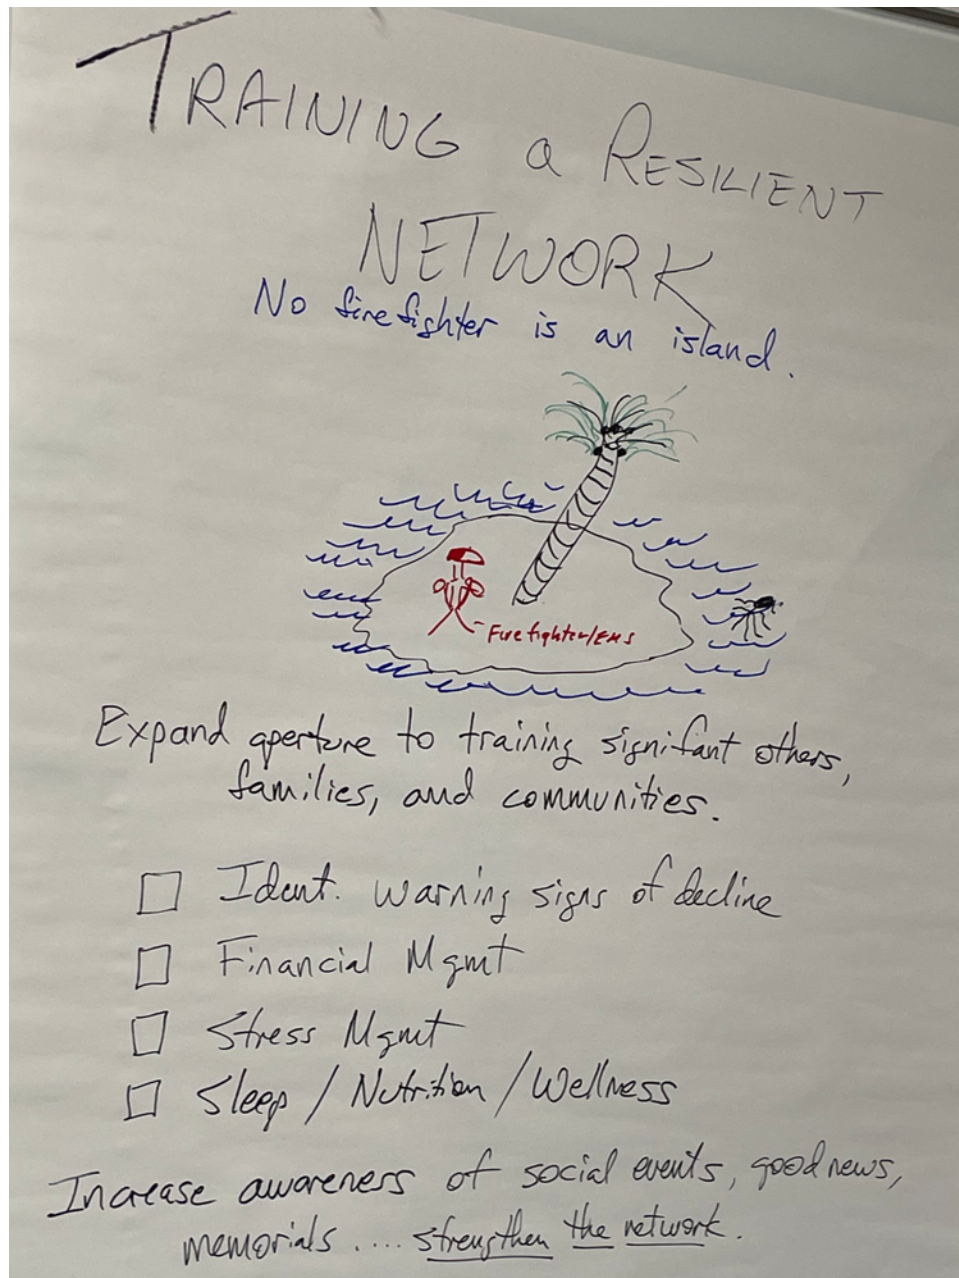 TRAINING a RESILIENT
NETWORK
No firefighter is an island.
Firefighter/EMS
Expand aperture to training signifant others,
families, and communities.
Ident. warning signs of decline
Financial Mgmt
Stress Mgmt
Sleep / Nutrition / Wellness
Increase awareness of social events, good news,
memorials .... strengthen the network.